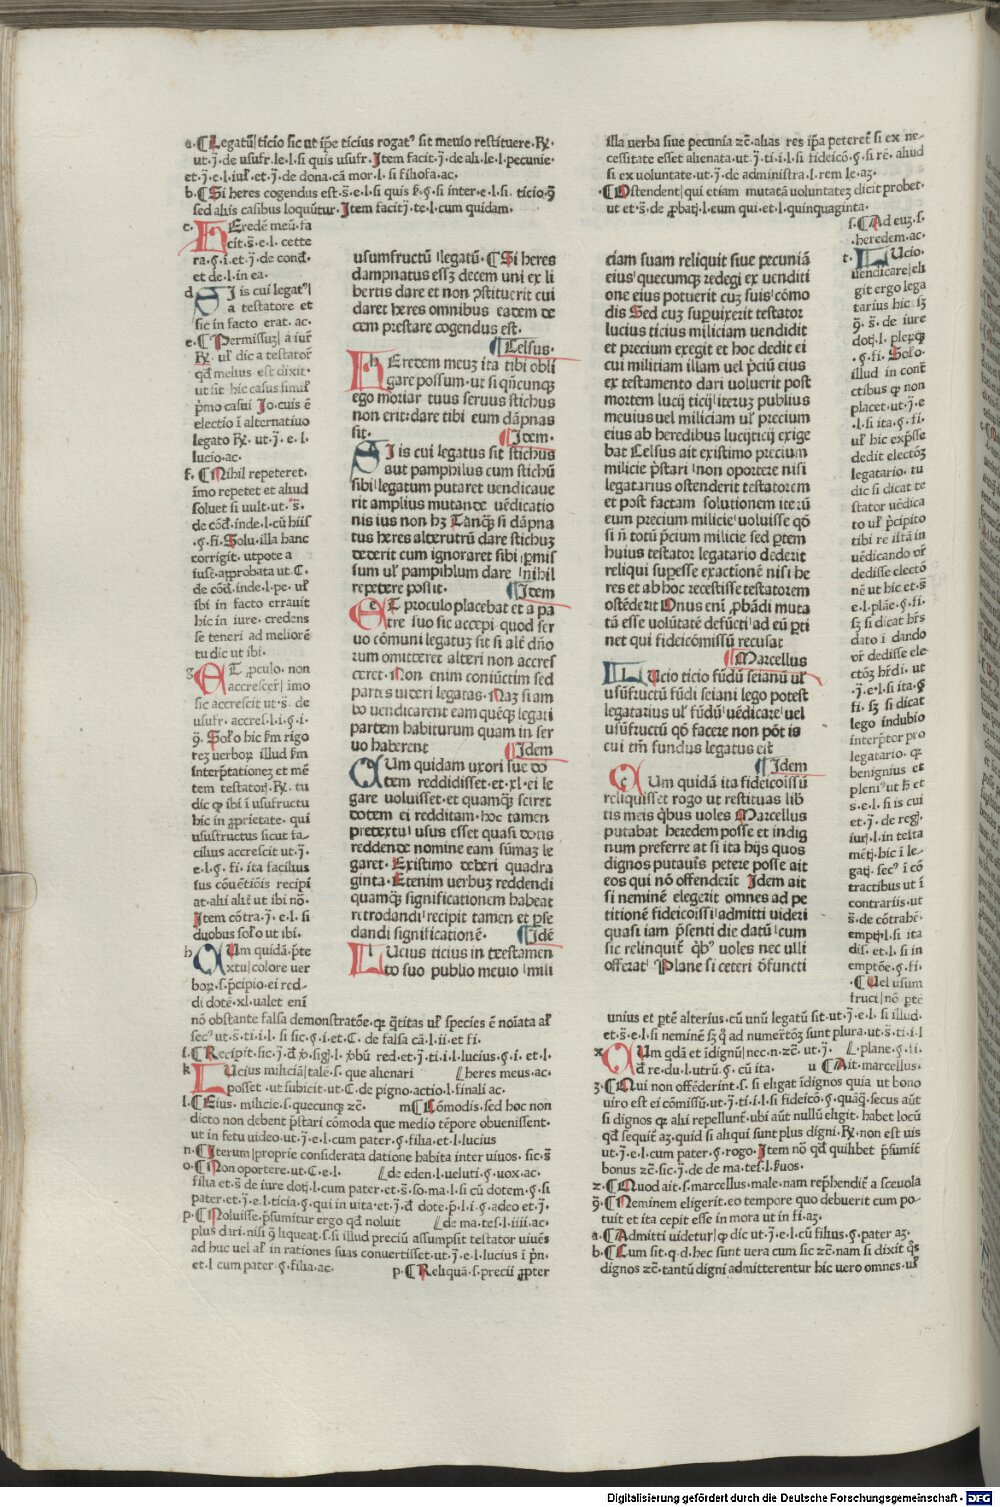 a.¶Legatū| ticio sic ut ip̄e ticius rogat⁹ sit meuio restituere. R̷.
ut .j̄. de usufr. le. l. si quis usufr. Item facit .j̄. de ali. le. l. pecunie
et .j̄. e. l. iul̵. et .j̄. de dona. cā mor. l. si filiofa. ac.
b.¶Si heres cogendus est. s̄. e. l. si quis k̄. §. si inter. e. l. si. ticio. ꝯ
sed aliis casibus loquūtur. Item facit .j̄. te. l. cum quidam.
c. HEredē meū. fa
cit. s̄. e. l. cette
ra. §. i. et .j̄. de cond̄.
et de. l. in ea.
d SI is cui legat⁹|
a testatore et
sic in facto erat. ac.
e.¶Permissuȝ| a iur̄
R̷. ul̵ dic a testator̄
qd̄ melius est dixit.
ut sit hic casus simil̵
p̄mo casui Jo. cuis ē
electio ī alternatiuo
legato R̷. ut .j̄. e. l.
lucio. ac.
f.¶Nihil repeteret.
īmo repetet et aliud
soluet si uult. ut. s̄.
de cōd̄. inde. l. cū hiis
.§. fi. Solu. illa hanc
corrigit. utpote a
iust. aꝓbata ut. C.
de cōd̄. inde. l. pe. ul̵
ibi in facto errauit
hic in iure. credens
se teneri ad meliorē
tu dic ut ibi.
g ET. ꝓculo. non
accrescer̄| īmo
sic accrescit ut. s̄. de
usufr. accres. l. i. §. i.
ꝯ. Sol̵o hic km̄ rigo
reȝ uerboꝝ illud km̄
interp̄tationeȝ et mē
tem testatoꝝ. R̷. tu
dic ꝙ ibi ī usufructu
hic in ꝓprietate. qui
ususfructus sicut fa-
cilius accrescit ut .j̄.
e. l. §. fi. ita facilius
sus cōuētiōis recipi
at. alii alit̄ ut ibi nō.
Item cōtra .j̄. e. l. si
duobus sol̵o ut ibi.
h CUm quidā. p̄te
xtu| colore uer
boꝝ. s. p̄cipio. ei red-
di dotē. xl. ualet eni
usumfructū legatū. ¶Si heres
dampnatus esset decem uni ex li
bertis dare et non ꝯstituerit cui
daret heres omnibus eadem de
cem prestare cogendus est.
¶Celsus.
HEredem meuȝ ita tibi obli
gare possum. ut si qn̄cunqꝫ
ego moriar tuus seruus stichus
non erit: dare tibi eum dāpnas
sit.
¶Idem.
SI is cui legatus sit stichus
aut pamphilus cum stichū
sibi| legatum putaret uendicaue
rit amplius mutande uēdicatio
nis ius non hȝ Tanqꝫ si dāpna
tus heres alterutrū dare stichuȝ
dederit cum ignoraret sibi ꝑmis
sum ul̵ pamphilum dare |nihil
repetere possit.
¶Idem
ET proculo placebat et a pa
tre suo sic accepi quod ser
uo cōmuni legatuȝ sit si alt̄ dn̄o
rum omitteret alteri non accres
ceret. Non enim coniūctim sed
partes uideri legatas. Naȝ si am
bo uendicarent eam quēqꝫ legati
partem habiturum quam in ser
uo haberent
¶Idem
CUm quidam uxori sue do
tem reddidisset. et. xl. ei le
gare uoluisset. et quamqꝫ sciret
dotem ei redditam. hoc tamen
pretextu| usus esset quasi dotis
reddende nomine eam sūmaȝ le
garet. Existimo deberi quadra
ginta. Etenim uerbuȝ reddendi
quamqꝫ significationem habeat
retrodandi| recipit tamen et ꝑse
dandi significationē.
¶Idē
LUcius ticius in testamen
to suo publio meuio |mili
nō obstante falsa demonstratōe. ꝙ q̄titas ul̵ species ē noīata al̵
sec⁹ ut. s̄. ti. i. l. si sic. §. i. et. C. de falsa cā. l. ii. et fi.
k LUcius miliciā| talē. s. que alienari ⁅heres meus. ac.
posset. ut subicit. ut. C. de pigno. actio. l. finali ac.
l.¶Eius. milicie. s. quecunqꝫ ⁊c̄. m¶Cōmodis. sed hoc non
dicto non debent p̄stari cōmoda que medio tēpore obuenissent.
ut in fetu uideo. ut .j̄. e. l. cum pater. §. filia. et l. lucius
n.¶Iterum| proprie considerata datione habita inter uiuos. sic. s̄
o.¶Non oportere. ut. C. e. l. ⁅de eden. l. ueluti. §. uox. ac.
filia et. s̄. de iure dotꝭ. l. cum pater. et. s̄. so. ma. l. si cū dotem. §. si
pater. et .j̄. e. l. ticia. §. qui in uita. et .j̄. d̄ dote. p̄. l. i. §. adeo et .j̄.
p.¶Noluisse. p̄sumitur ergo qd̄ noluit ⁅de ma. tes. l. iiii. ac.
plus dari. nisi ꝯ liqueat. s. si illud preciū assumpsit testator uiuēs
ad huc uel al̵ in rationes suas conuertisset. ut .j̄. e. l. lucius ī p̄n.
et. l cum pater. §. filia. ac. p.¶Reliquā. s. precii ꝓpter
illa uerba siue pecunia ⁊c̄. alias res ip̄a peteret̄ si ex ne-
cessitate esset alienata. ut .j̄. ti. i. l. si fideicō. §. si rē. aliud
si ex uoluntate. ut .j̄. de administra. l. rem le. aȝ.
.¶Ostendent| qui etiam mutatā uoluntateȝ dicit probet.
ut et. s̄. de ꝓbatꝭ. l. eum qui. et. l. quinquaginta.
ciam suam reliquit siue pecuniā
eius| quecumqꝫ redegi ex uenditi
one eius potuerit cuȝ suis| cōmo
dis Sed cuȝ suꝑuixerit testator
lucius ticius miliciam uendidit
et precium exegit et hoc dedit ei
cui militiam illam uel p̄ciū eius
ex testamento dari uoluerit post
mortem lucij ticij| iteruȝ publius
meuius uel miliciam ul̵ precium
eius ab heredibus lucijticij exige
bat Celsus ait existimo precium
milicie p̄stari| non oportere nisi
legatarius ostenderit testatorem
et post factam solutionem iterū
eum precium milicie| uoluisse qō
si n̄ totū p̄cium milicie sed ꝑtem
huius testator legatario dederit
reliqui suꝑesse exactionē nisi he
res et ab hoc recestisse testatorem
ostēderit Onus eni ꝓbādi muta
tā esse uolūtatē defūcti| ad eū ꝑti
net qui fideicōmissū recusat
¶Marcellus
LUcio ticio fūdū seianū ul̵
usūfructū fūdi seiani lego potest
legatarius ul̵ fūdū| uēdicare| uel
usūfructū qō facere non pōt is
cui tm̄ fundus legatus est
¶Idem
CUm quidā ita fideicoissū
reliquisset rogo ut restituas lib
tis meis q̄bus uoles Marcellus
putabat heredem posse et indig
num preferre at si ita hijs quos
dignos putauīs petere posse ait
eos qui nō offenderīt Idem ait
si neminē elegerit omnes ad pe
titionē fideicoissi| admitti uideri
quasi iam p̄senti die datū| cum
sic relinquit̄ q̄b⁹ uoles nec ulli
offerat| Plane si ceteri d̄functi
s.¶Ad euȝ. s.
.heredem. ac.
t. LUcio.
uendicare| eli
git ergo lega
tarius hic. sȝ
ꝯ. s̄. de iure
dotꝭ. l. pleꝝqꝫ
.§. fi. Sol̵o.
illud in cont̄
ctibus ꝙ non
placet. ut .j̄. e
.l. si ita. §. fi.
ul̵ hic exp̄sse
dedit electōȝ
legatario. tu
dic si dicat te
stator uēdica
to ul̵ p̄cipito
tibi rē istā in
uēdicando ul̵
dedisse electō
nē ut hic et. s̄
e. l. plāe. §. fi.
sȝ si dicat hr̄s
dato ī dando
ul̵ dedisse ele
ctōȝ hr̄di. ut
.j̄. e. l. si ita §
fi. sȝ si dicat
lego indubio
interp̄tor pro
legatario. ꝙ
benignius et
pleni⁹ ut h et
s̄. e. l. si is cui
et .j̄. de regꝭ.
iurꝭ. l. in testa
mētꝭ. hic ī le-
gatꝭ. sec⁹ ī cō
tractibus ut ī
contrariis. ut
s̄. de cōtrahē.
emptꝭ. l. si ita
dis. et. l. si in
emptōe. §. fi.
.¶Uel usum
fruct| nō ꝑtē
unius et ꝑtē alterius. cū unū legatū sit. ut .j̄. e. l. si illud.
et. s̄. e. l. si neminē sȝ q̄ ad numerōȝ sunt plura. ut. s̄. ti. i. l
x CUm qdā et īdignū| nec. n. ⁊c̄. ut .j̄. ⁅. plane. §. fi.
d̄ re du. l. utrū. §. cū ita. u ¶Ait. marcellus.
ȝ.¶Qui non offēderint. s. si eligat īdignos quia ut bono
uiro est ei cōmissū. ut .j̄. ti. i. l. si fideicō. §. quāqꝫ. secus aūt
si dignos ꝙ alii repellunt̄. ubi aūt nullū eligit. habet locū
qd̄ sequit̄ aȝ. quid si aliqui sunt plus digni. R̷. non est uis
ut .j̄. e. l. cum pater. §. rogo. Item nō qd̄ quilibet p̄sumit̄
bonus ⁊c̄. sic .j̄. de de ma. tes. l. k̄uos.
ꝛ.¶Quod ait. s. marcellus. male. nam rep̄hendit̄ a sceuola
ꝯ.¶Neminem eligerit. eo tempore quo debuerit cum po-
tuit et ita cepit esse in mora ut in fi. aȝ.
a.¶Admitti uidetur| ꝙ dic ut .j̄. e. l. cū filius. §. pater aȝ.
b.¶Cum sit. q. d. hec sunt uera cum sic ⁊c̄. nam si dixit q̄s
dignos ⁊c̄. tantū digni admitterentur hic uero omnes. ul̵
Digitalisierung gefördert durch die Deutsche Forschungsgemeinschaft - DFG